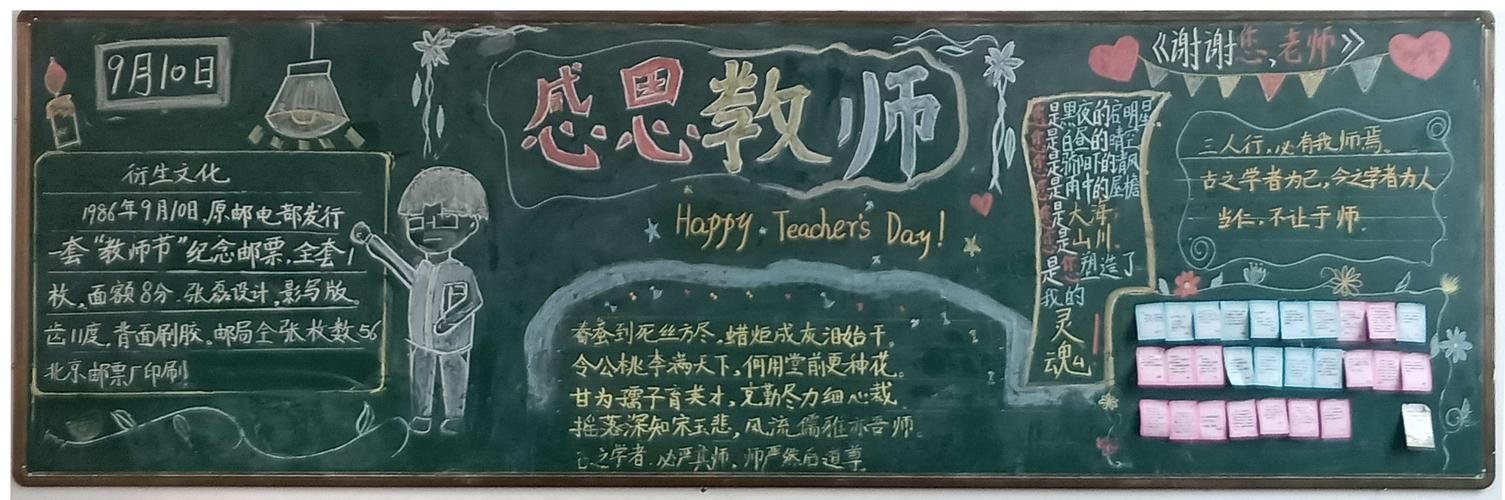 9月10日
衍生文化
1986年9月10日,原邮电部发行
一套“教师节”纪念邮票,全套1
枚,面额8分.张磊设计,影写版。
齿11度,背面刷胶。邮局全张枚数56
北京邮票厂印刷
感恩教师
Happy Teacher's Day!
春蚕到死丝方尽,蜡炬成灰泪始干。
令公桃李满天下,何用堂前更种花。
甘为孺子育英才,克勤尽力细心裁
摇落深知宋玉悲,风流儒雅亦吾师.
古之学者.必严其师,师严然后道尊
您是黑夜的启明星
您是白昼的晴空
您是弥叩下的清风
您是雨中的屋檐
您是大海
您是山川.
是您塑造了
我的
灵魂
《谢谢您,老师》
三人行,必有我师焉。
古之学者为己,今之学者为人
当仁,不让于师.